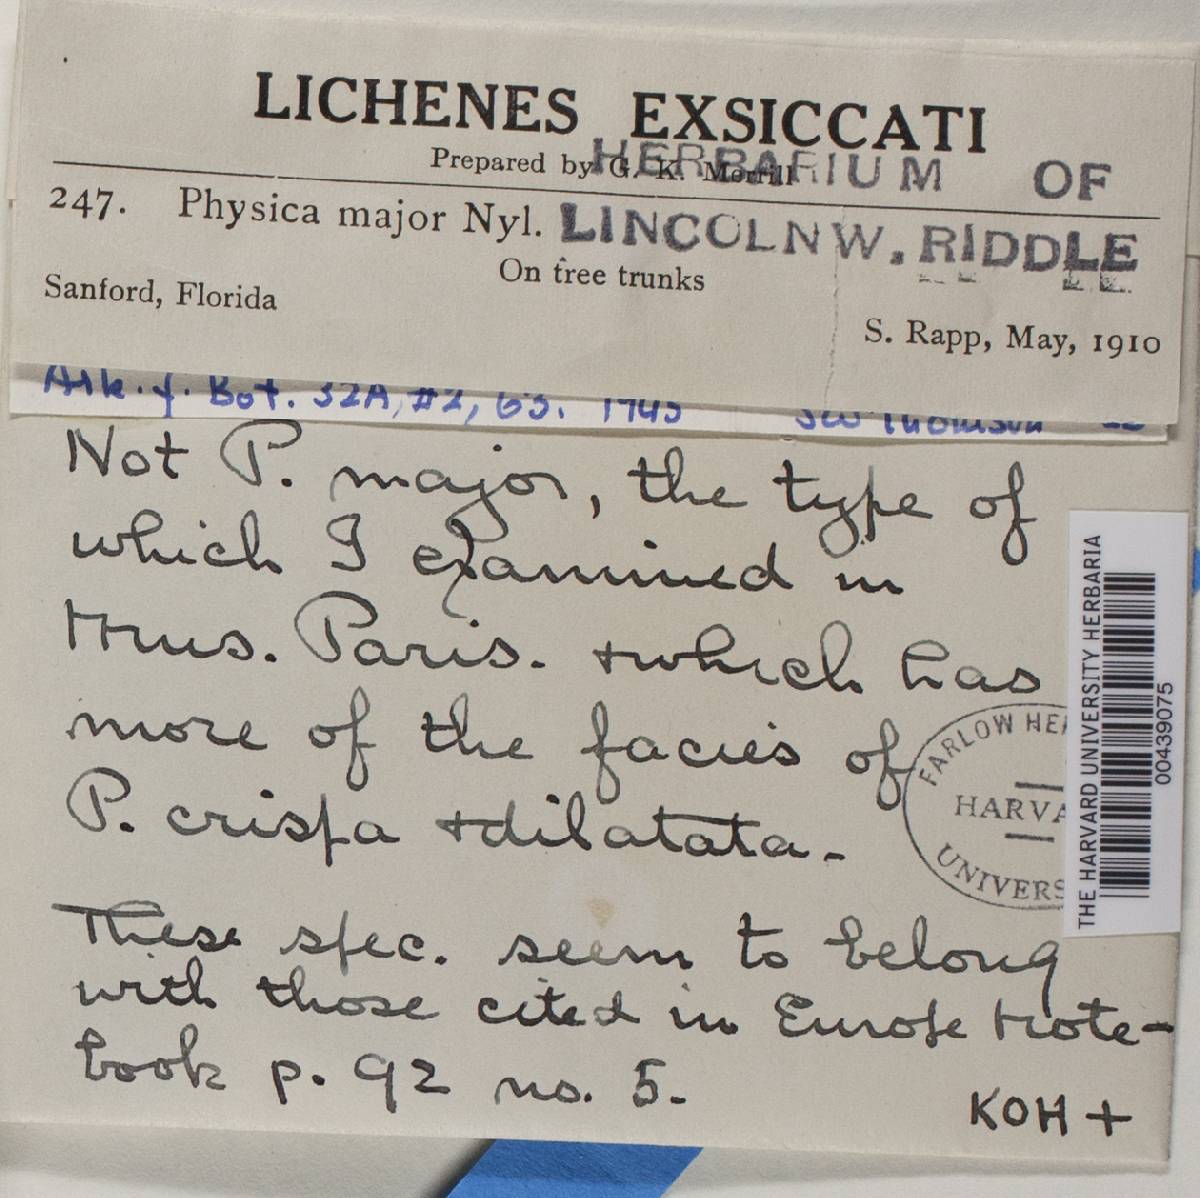 LICHENES EXSICCATI
Prepared by G. K. Merrill
HERBARIUM OF
247. Physica major Nyl.
LINCOLN W. RIDDLE
On tree trunks
Sanford, Florida
S. Rapp, May, 1910
Ark. f. Bot. 32A, #2, 63. 1945 Thomson
Not P. major, the type of
which I examined in
Mus. Paris. + which has
more of the facies of
P. crispa + dilatata.
These spec. seem to belong
with those cited in Europe Note-
book p. 92 no. 5.
KOH +
FARLOW HER
HARVA
UNIVERS
THE HARVARD UNIVERSITY HERBARIA
00439075